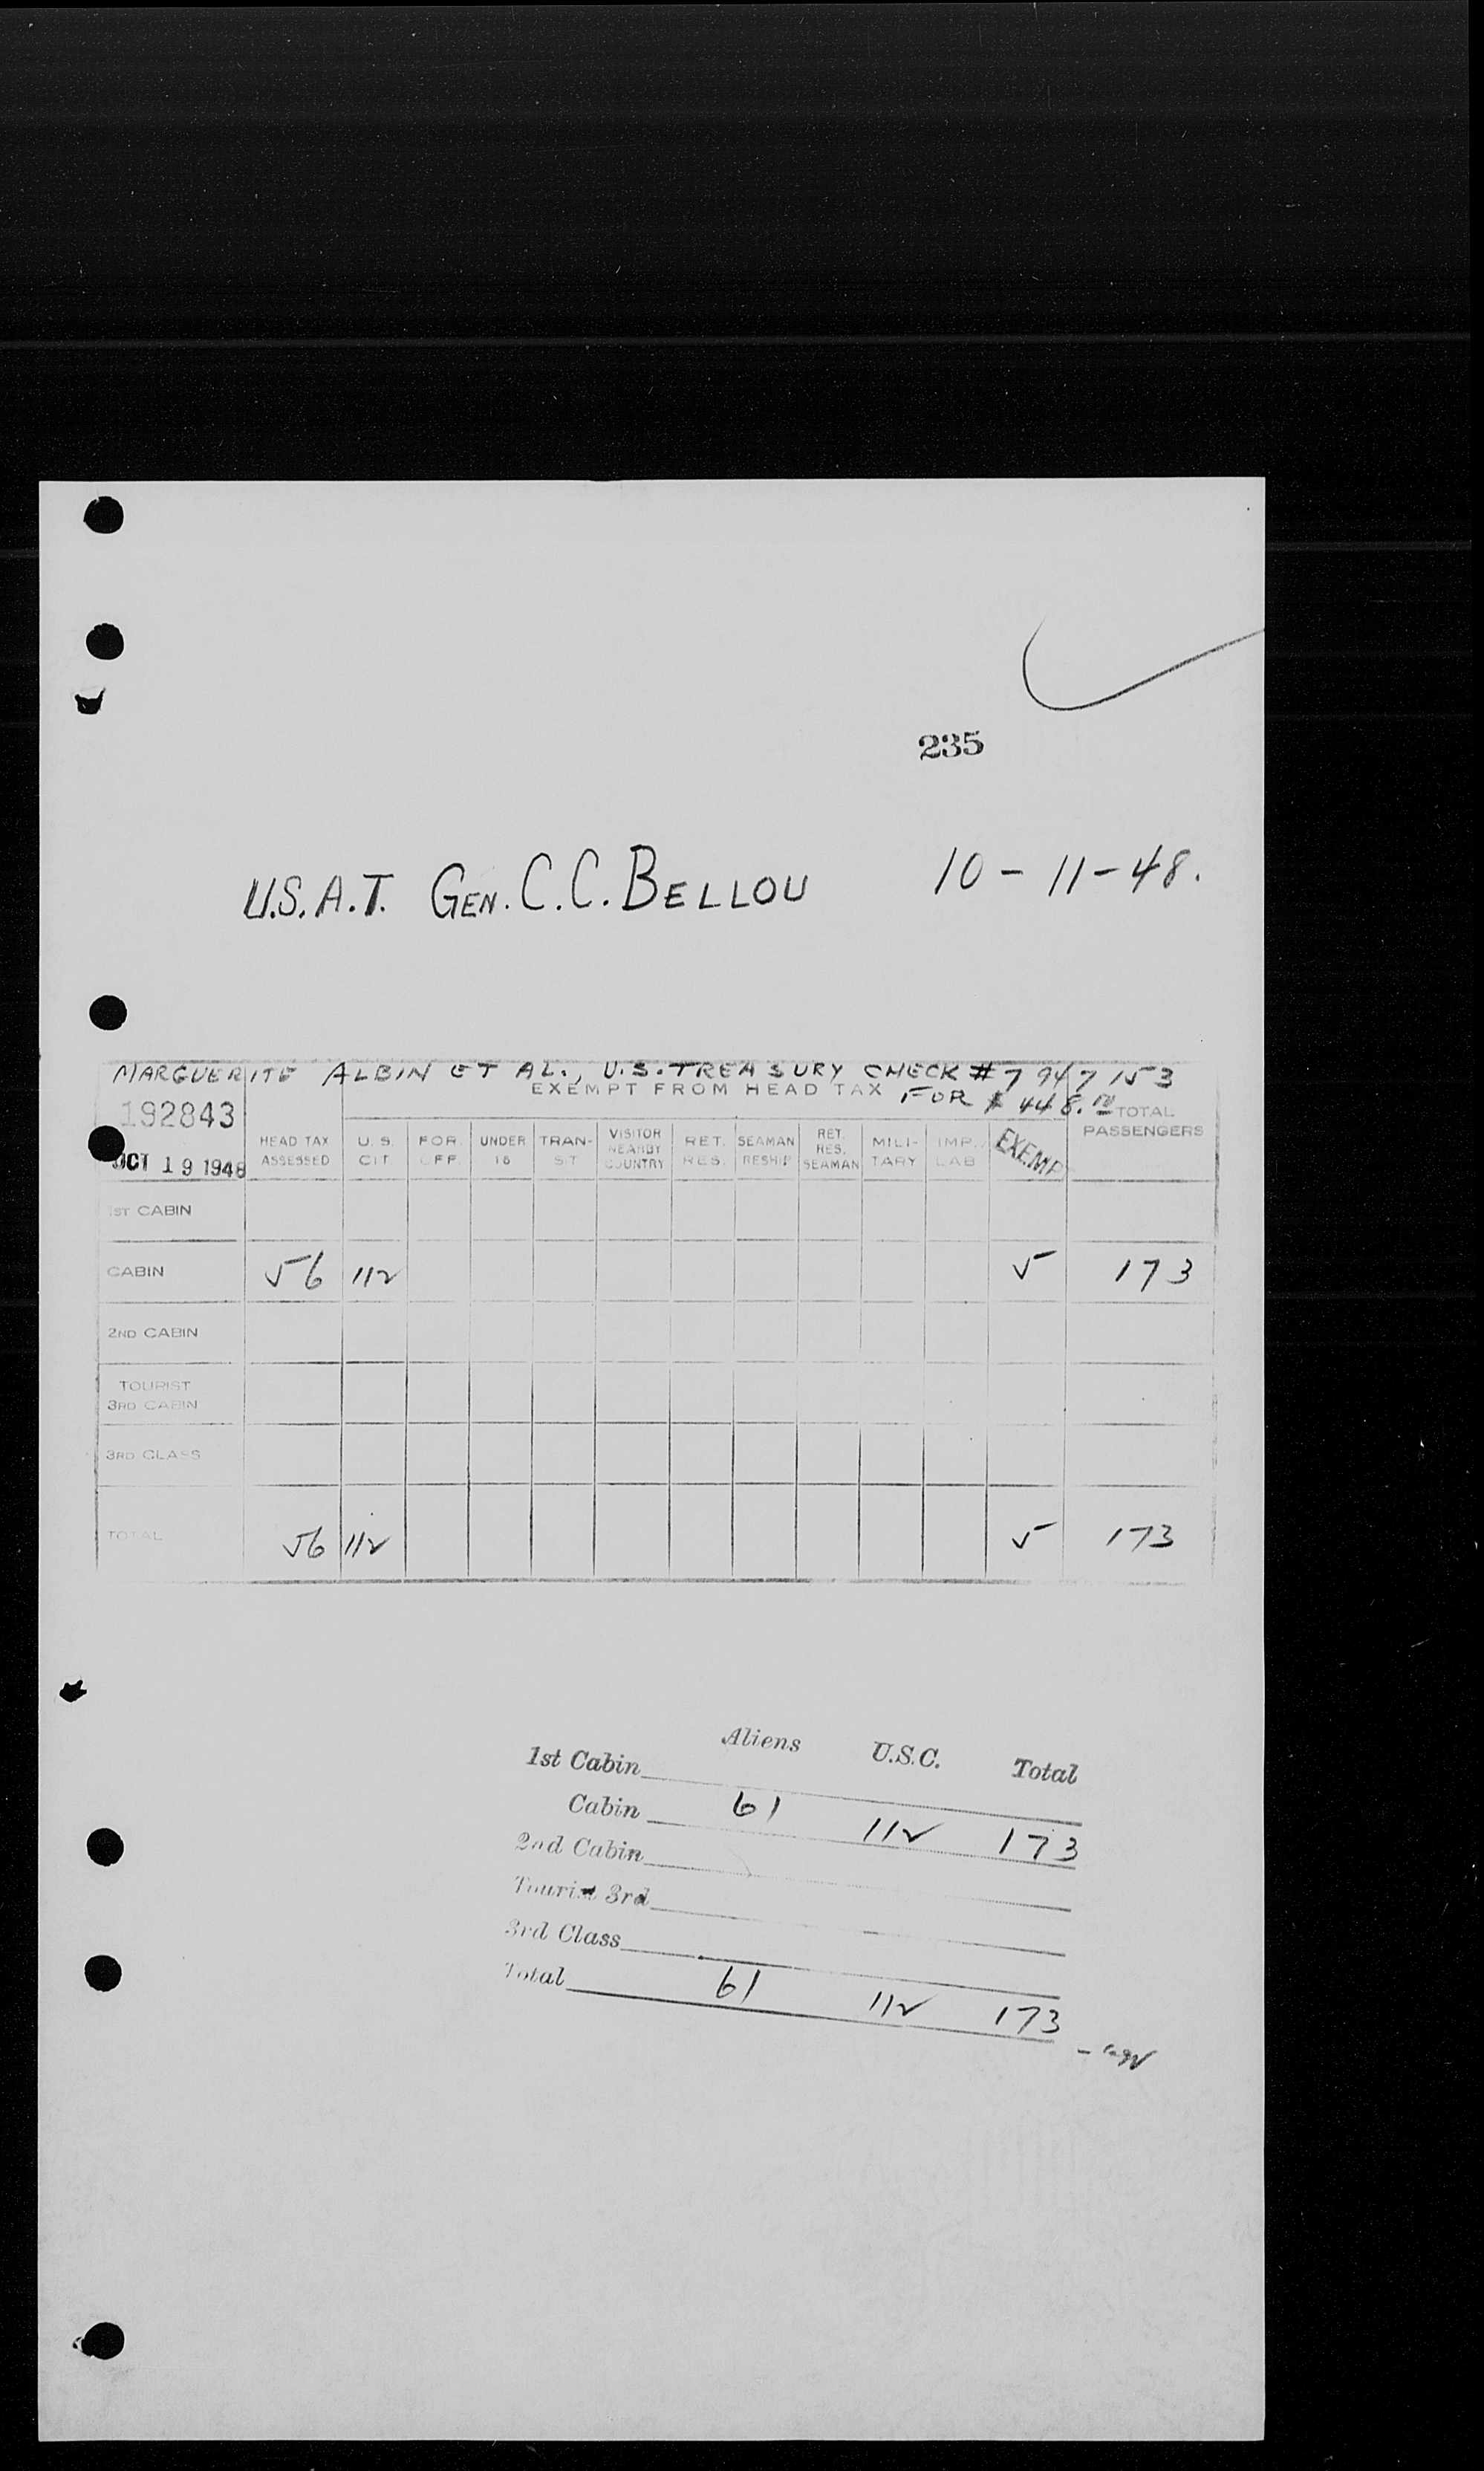 235
U.S.A.T. GEN. C.C. BELLOU 10-11-48.
MARGUERITE ALBIN ET AL., U.S. TREASURY CHECK # 7947153
EXEMPT FROM HEAD TAX FOR $ 448.00
192843
OCT 19 1948
HEAD TAX ASSESSED U.S. CIT. FOR. OFF. UNDER 16 TRAN-SIT VISITOR NEARBY COUNTRY RET. RES. SEAMAN RESHIP RET. RES. SEAMAN MILI-TARY IMP. LAB EXEMP TOTAL PASSENGERS
1ST CABIN
CABIN 56 112 5 173
2ND CABIN
TOURIST
3RD CABIN
3RD CLASS
TOTAL 56 112 5 173
Aliens U.S.C. Total
1st Cabin
Cabin 61 112 173
2nd Cabin
Tourist 3rd
3rd Class
Total 61 112 173